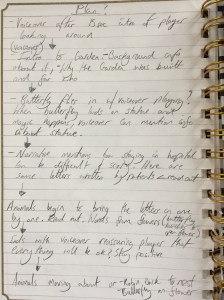 Plan?
- Voiceover after 10 sec intro of player
looking around
(voiceover)
Intro to Garden - Background info
about it, why the Garden was built
and for who
- Butterfly flies in w/ voiceover playing?
When butterfly lands on statue and
magic happens voiceover can mention info
about statue.
- Narrative mentions how staying in hospital
can be difficult & scary - Here are
some letters written by patients & read out
Animals begin to bring the letters in one
by one. Read out. Words from flowers (butterfly
Ends with voiceover reassuring player that
everything will be ok; Stay positive
Animals moving about or Robin back to nest
Butterfly on flower